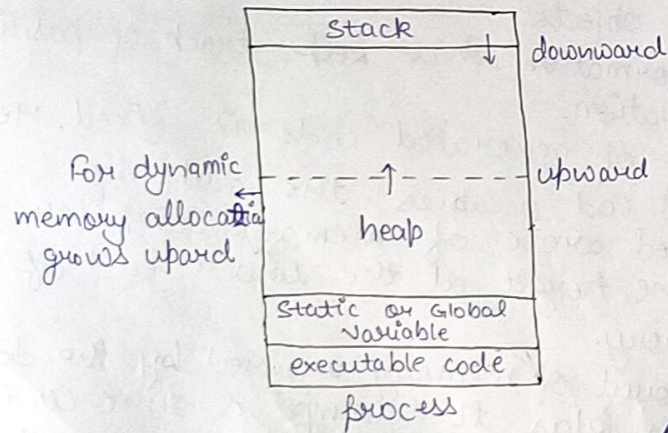 Stack
downward
For dynamic
upward
memory allocatio
heap
grows upard
Static or Global
Variable
executable code
process